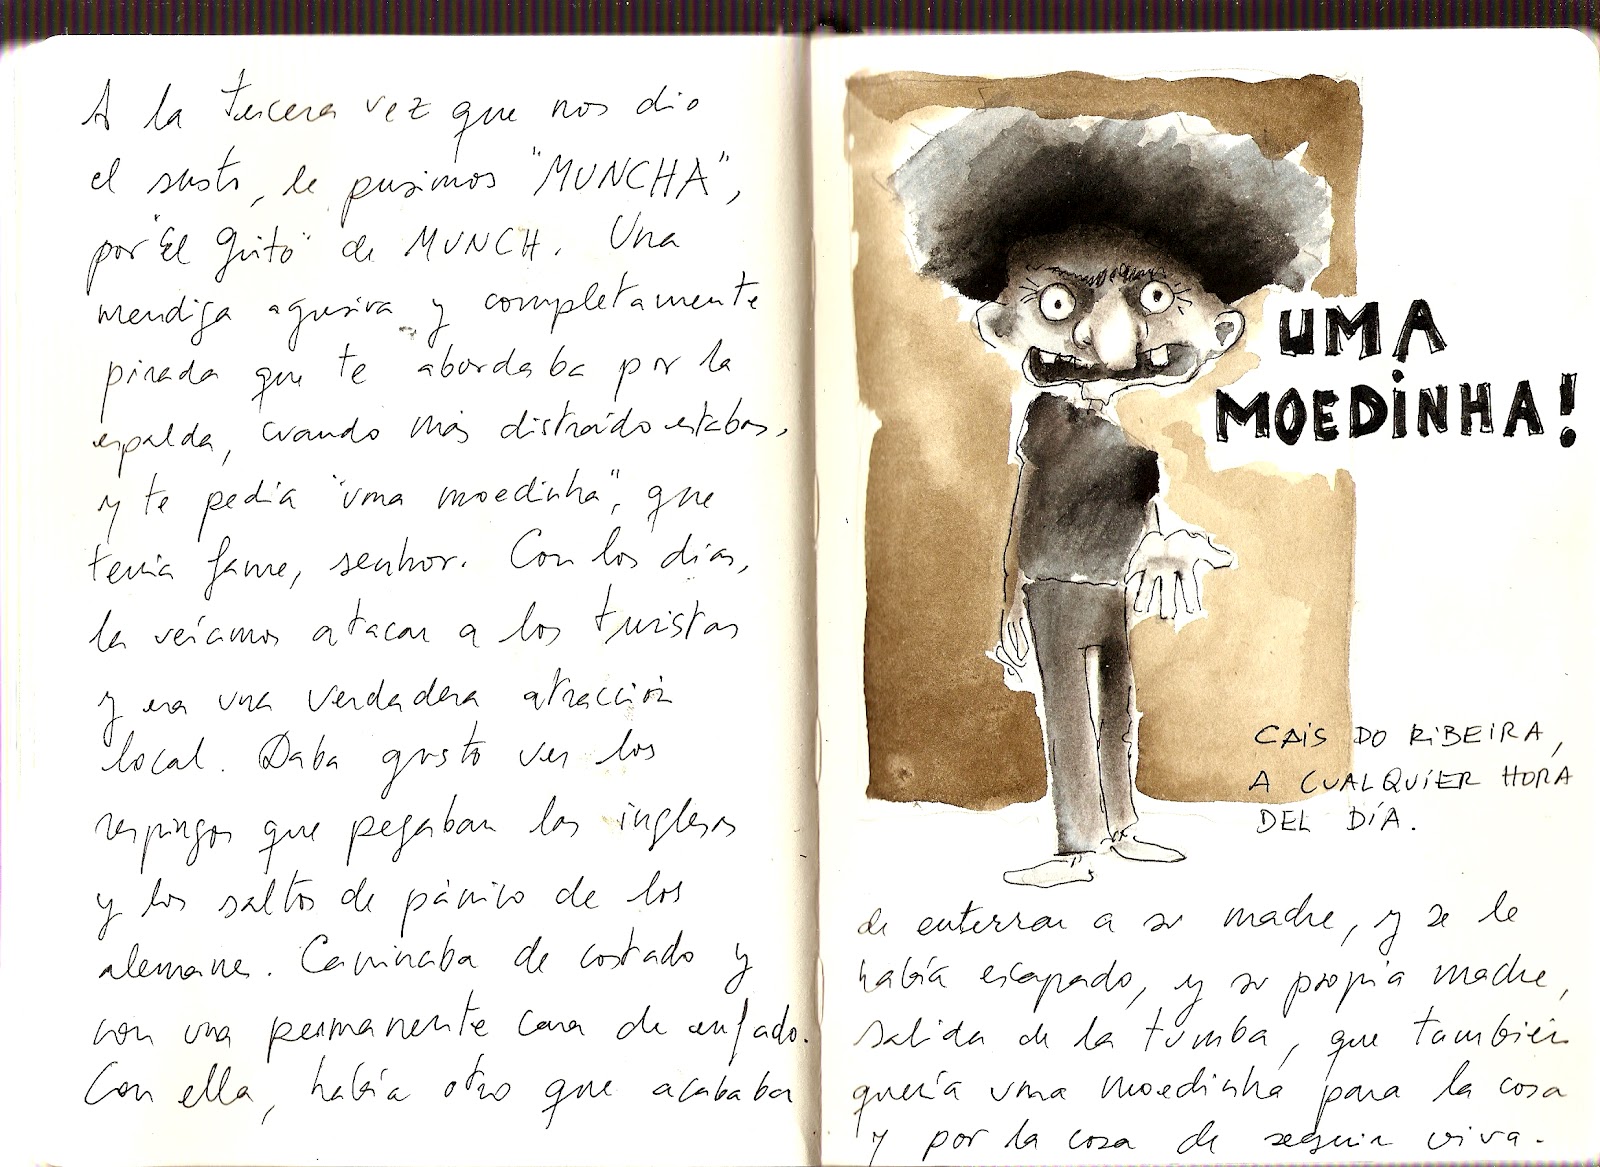 A la tercera vez que nos dio
el susto, le pusimos "MUNCHA",
por "El Grito" de MUNCH. Una
mendiga agresiva y completamente
pirada que te abordaba por la
espalda, cuando más distraído estabas,
y te pedía "uma moedinha", que
tenia fame, senhor. Con los días,
la veíamos atacar a los turistas
y era una verdadera atracción
local. Daba gusto ver los
respingos que pegaban los ingleses
y los saltos de pánico de los
alemanes. Caminaba de costado y
con una permanente cara de enfado.
Con ella, había otro que acababa
UMA
MOEDINHA!
CAIS DO RIBEIRA,
A CUALQUIER HORA
DEL DÍA.
de enterrar a su madre, y se le
había escapado, y su propia madre,
salida de la tumba, que también
quería uma moedinha para la cosa
y por la cosa de seguir viva.